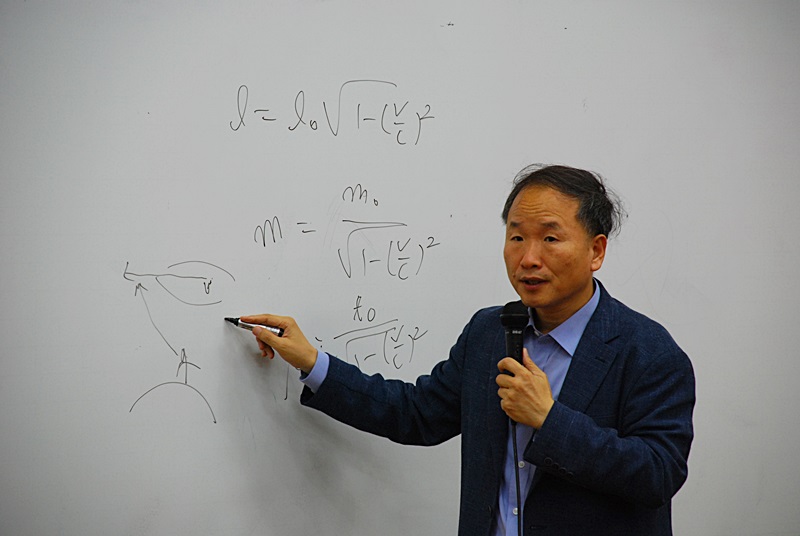 l = l₀√1-(v/c)²
m = m₀/√1-(v/c)²
t₀/√1-(v/c)²
v